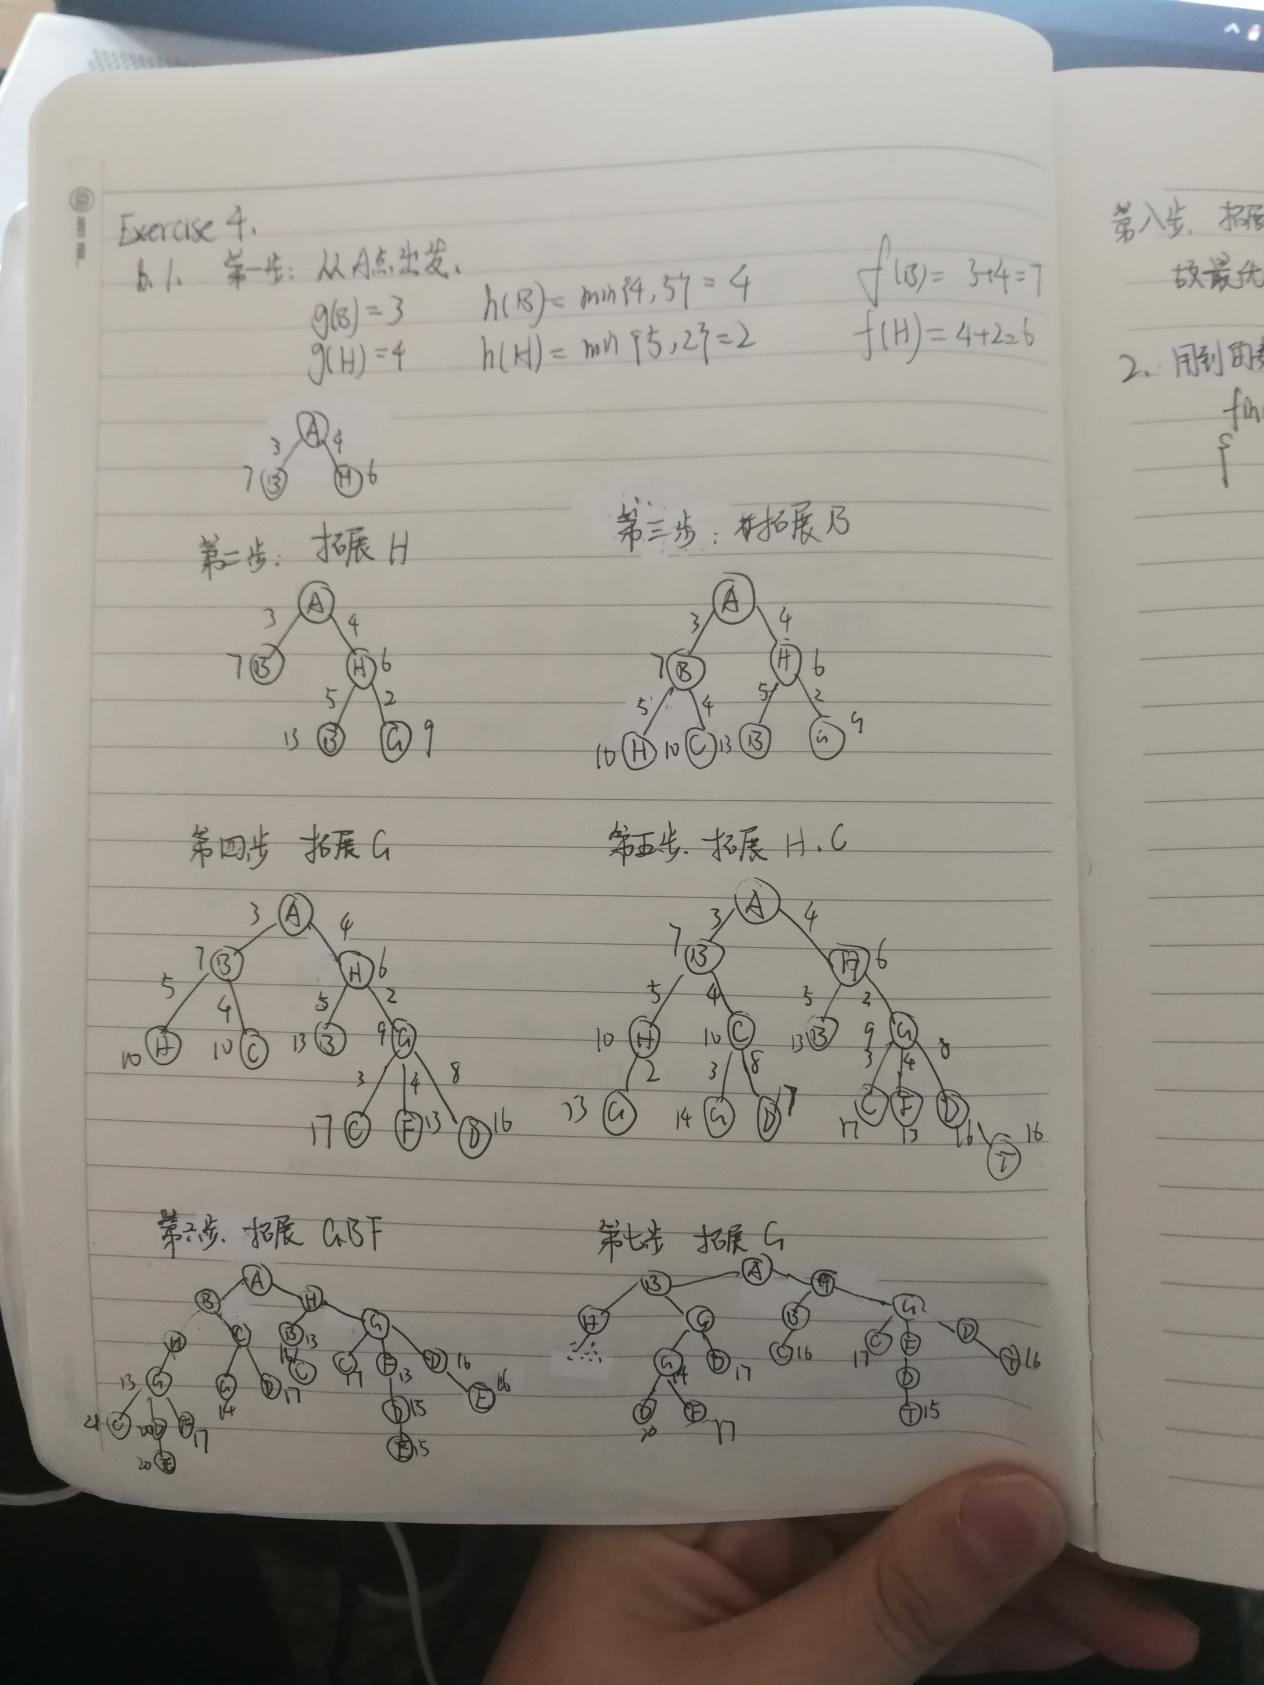 Exercise 4.
b. 1. 第一步: 从A点出发.
g(B)=3 h(B)=min{4,5}=4 f(B)=3+4=7
g(H)=4 h(H)=min{5,2}=2 f(H)=4+2=6
A
3 4
7 B H 6
第二步: 拓展 H
A
3 4
7 B H 6
5 2
13 B G 9
第三步: 拓展 B
A
3 4
7 B H 6
5 4 5 2
10 H 10 C 13 B G 9
第四步 拓展 G
A
3 4
7 B H 6
5 4 5 2
10 H 10 C 13 B 9 G
3 4 8
17 C F 13 D 16
第五步. 拓展 H. C
A
3 4
7 B H 6
5 4 5 2
10 H 10 C 13 B 9 G
2 3 8 3 4 8
13 G 14 G D 17 C F D
17 13 16 16
T
第六步. 拓展 G B F
A
B H
H C B 13 G
13 G G D 17 16 C C 17 F 13 D 16
14 E 16
21 C 20 D F 17 D 15
20 E 15
第七步 拓展 G
B A H
H C B G
G 14 D 17 C 16 17 C E D
D F D T 16
20 17 T 15
第八步. 拓展
故最优
2. 用到的